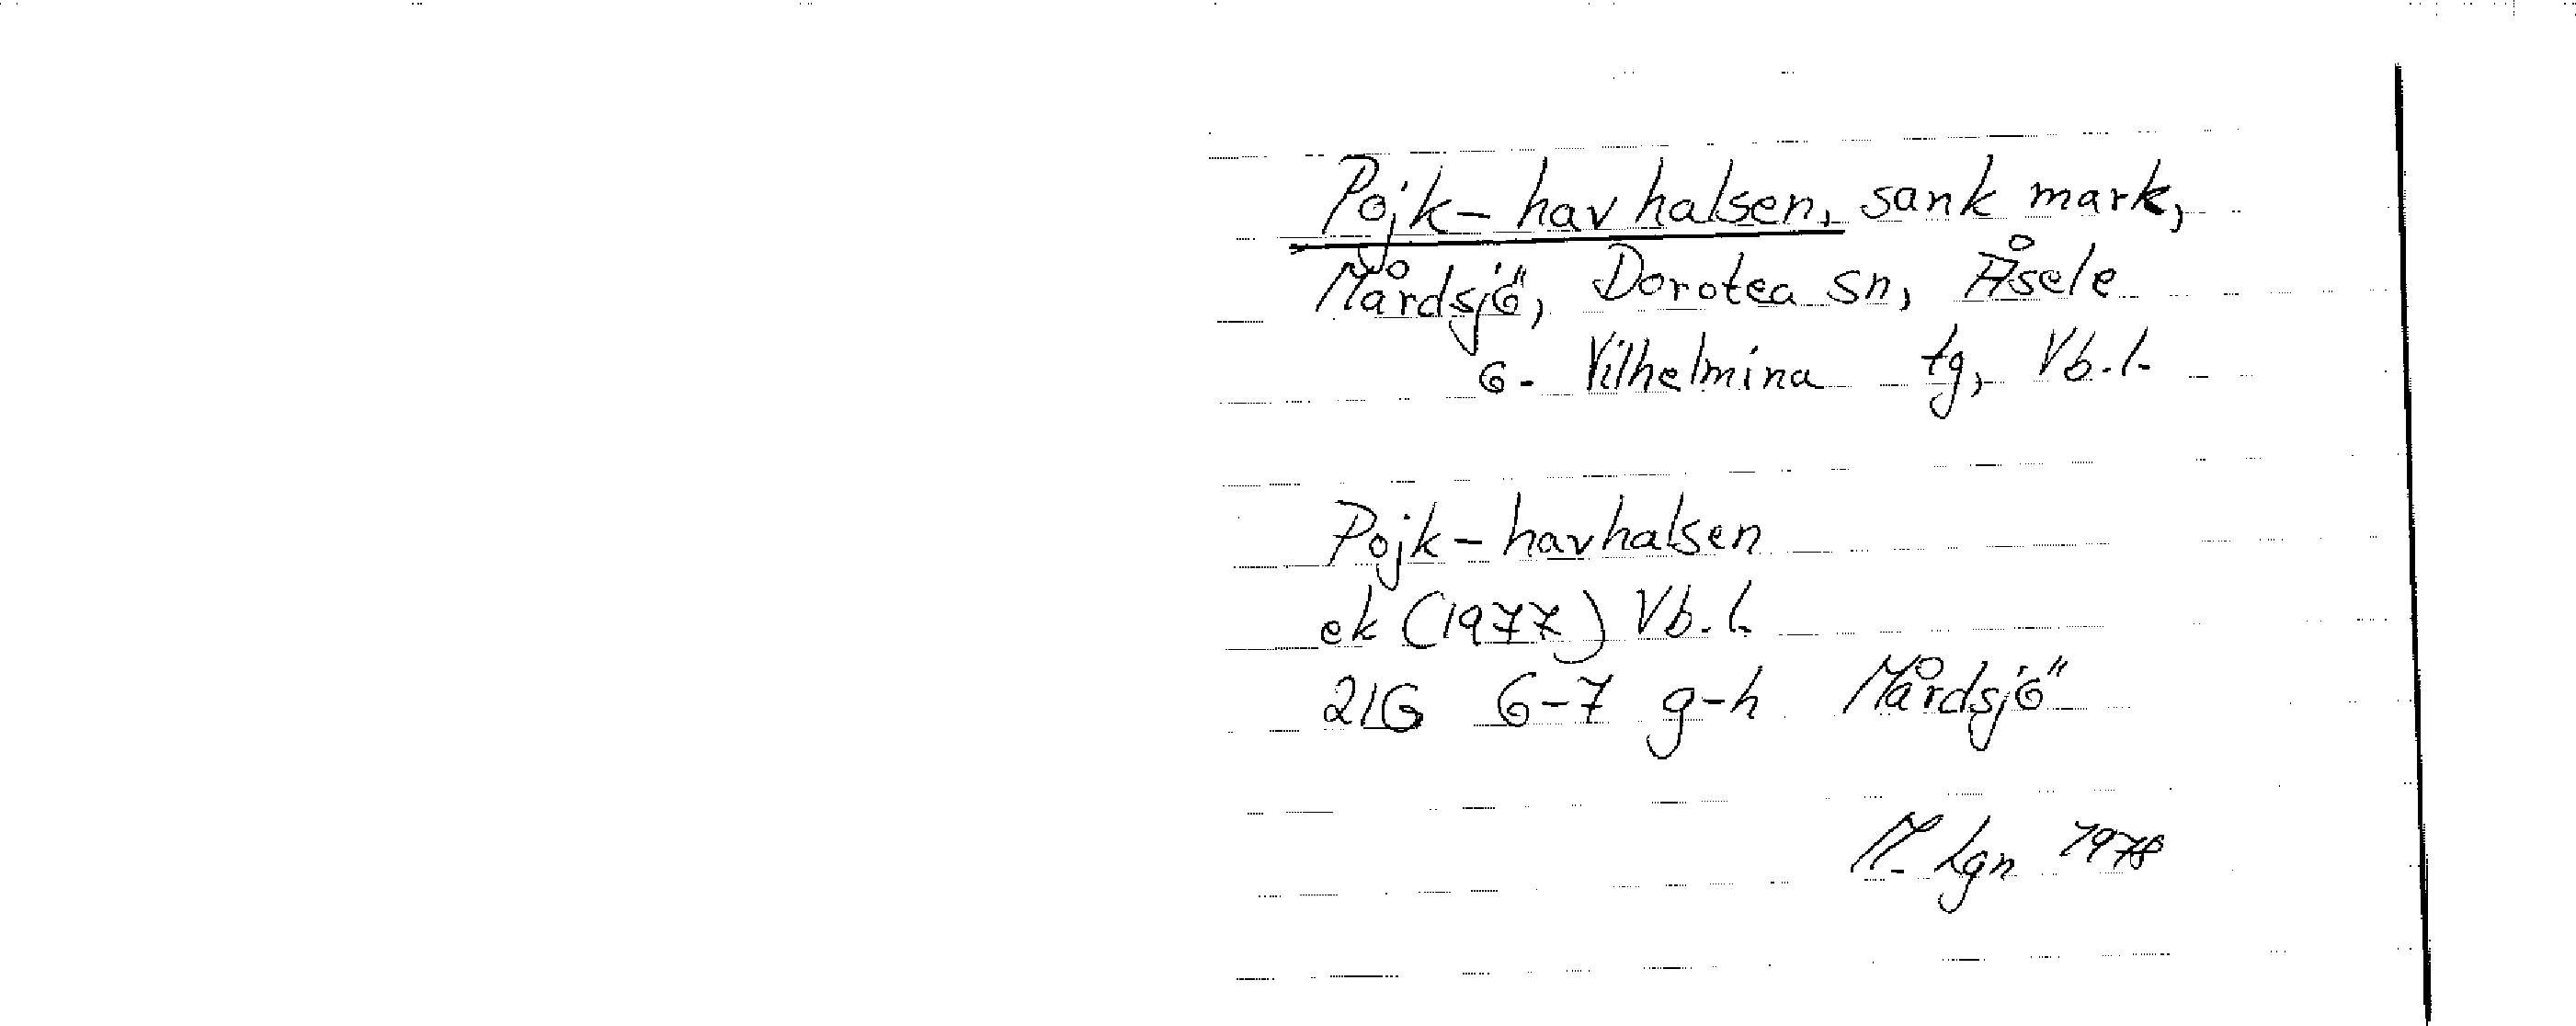 Pojk-havhalsen, sank mark,
Mårdsjö, Dorotea sn, Åsele
o. Vilhelmina tg, Vb.l.
Pojk-havhalsen
ek (1977) Vb.l.
21G 6-7 g-h Mårdsjö
M. Lgn 1978